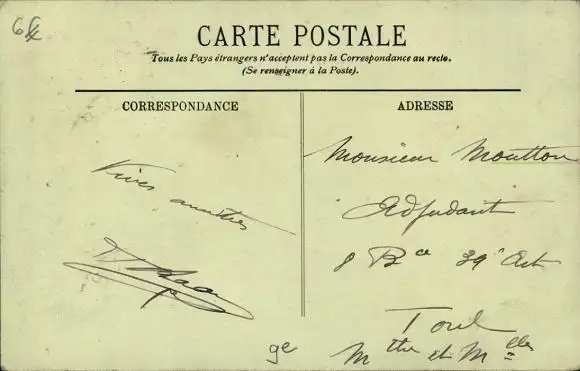 CARTE POSTALE
Tous les Pays étrangers n'acceptent pas la Correspondance au recto.
(Se renseigner à la Poste).
CORRESPONDANCE
Vives amitiés
ADRESSE
Monsieur Moutton
Adjudant
8 Bie 39e Art
Toul
Mthe et Mlle
ge